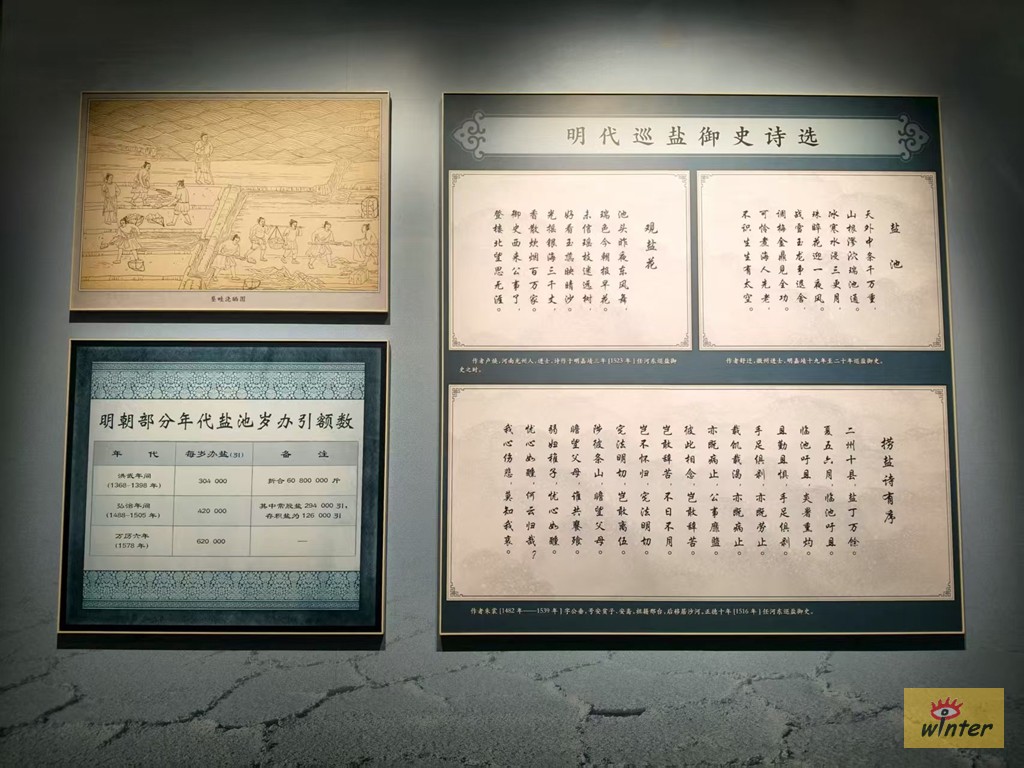 明代巡盐御史诗选
观盐花
池头昨夜东风舞，
瑞色今朝报早花。
未信瑶枝连远树，
好看玉攥映晴沙。
光摇银海三千丈，
香散炊烟百万家。
御史西来公事了，
登楼北望思无涯。
作者卢焕，河南光州人，进士，诗作于明嘉靖三年[1523年]任河东巡盐御
史之时。
盐池
天外中条千万重，
山根渗泬瑞池通。
冰寒水浸三更月，
珠晬花迎一夜风。
战雪玉龙事退舍，
调梅金鼎见全功。
可怜煮海人先老，
不识生生有太空。
作者舒迁，徽州进士，明嘉靖十九年至二十年巡盐御史。
捞盐诗有序
二州十县，盐丁万余。
夏五六月，临池吁且。
临池吁且，炎暑重灼。
且勤且惧，手足俱剥。
手足俱剥，亦既劳止。
载饥载渴，亦既病止。
亦既病止，公事靡盬。
彼此相念，岂敢辞苦。
岂敢辞苦，不日不月。
岂不怀归，宪法明切。
宪法明切，岂敢离伍。
陟彼条山，瞻望父母。
瞻望父母，谁共饔飧。
弱妇稚子，忧心如醺。
忧心如醺，何云归哉？
我心伤悲，莫知我哀。
作者朱裳[1482年——1539年]字公垂，号安贫子、安斋，祖籍邢台，后移居沙河。正德十年[1516年]任河东巡盐御史。
明朝部分年代盐池岁办引额数
年 代 每岁办盐(引) 备 注
洪武年间
(1368-1398年) 304 000 折合60 800 000斤
弘治年间
(1488-1505年) 420 000 其中常股盐294 000引，
存积盐为126 000引
万历六年
(1578年) 620 000 —
winter